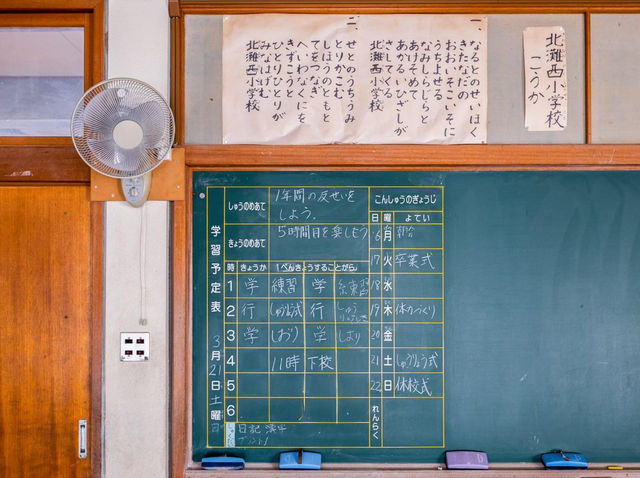 北灘西小学校
こうか
一
なるとのせいほく
きたなだの
おおいそこいそに
うちよせる
なみしらじらと
あけそめて
あかるいひざしが
さしてくる
北灘西小学校
二
せとのうちうみ
とりかこむ
しほうのともと
てをつなぎ
へいわなくにを
きずこうと
ひとりひとりが
みなはげむ
北灘西小学校
学習予定表
3月21日土曜日
しゅうのめあて
1年間の反せいを
しよう。
きょうのめあて
5時間目を楽しもう
時 きょうか 1べんきょうすることがら
1 学 練習 学
2 行 行
3 学 しおり 学 しおり
4 11時 下校
5
6
日記
こんしゅうのぎょうじ
日 曜 よてい
16 月
17 火 卒業式
18 水
19 木 体つづくり
20 金
21 土 しゅうりょう式
22 日 休校式
れんらく